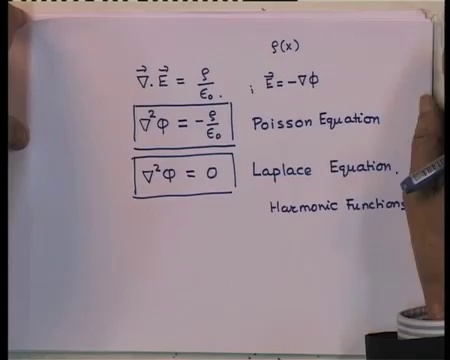 ρ(x)
∇⃗. E⃗ = ρ/ε₀. ; E⃗ = -∇Φ
∇²Φ = -ρ/ε₀ Poisson Equation
∇²Φ = 0 Laplace Equation.
Harmonic Functions